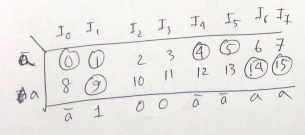 I₀ I₁ I₂ I₃ I₄ I₅ I₆ I₇
a̅ 0 1 2 3 4 5 6 7
a 8 9 10 11 12 13 14 15
a̅ 1 0 0 a̅ a̅ a a